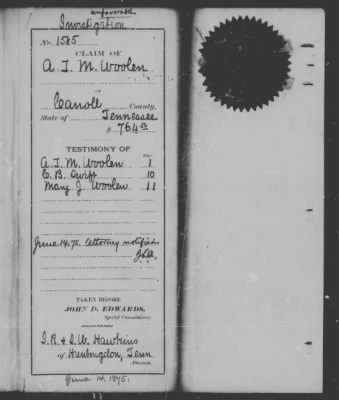 unfavorable
Investigation
No. 1585
CLAIM OF
A. T. M. Woolen
OF
Caroll County,
State of Tennessee
$ 764
TESTIMONY OF
A. T. M. Woolen 1
C. B. Swift 10
Mary J. Woolen 11
June 14.75. Attorney notified.
TAKEN BEFORE
JOHN D. EDWARDS,
Special Commissioner.
I. R. & S. W. Hawkins
of Huntingdon, Tenn
Attorneys.
June 14, 1875.